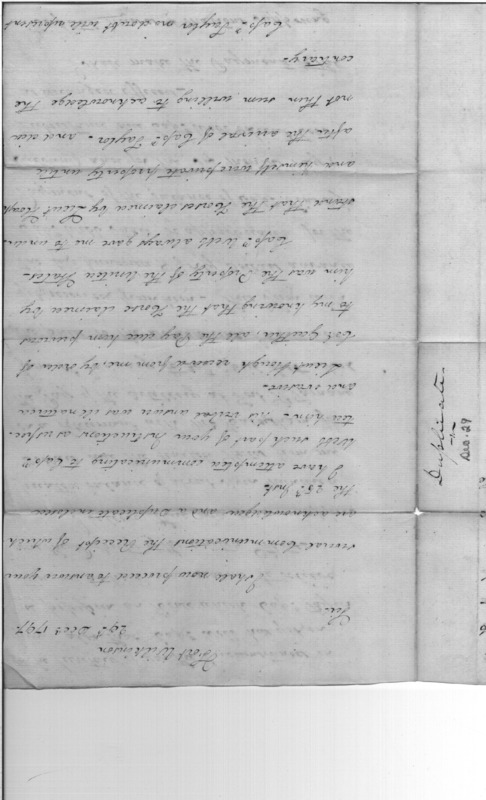 Fort Wilkinson
29th Decr 1797
Sir
I shall now proceed to answer your
several Communications the Receipt of which
are acknowledged and a Duplicate inclosed
the 25th Inst.
I have attempted communicating to Capt.
Webb such part of your Instructions as refer-
red him - his verbal answer was ill natured
and evasive.
Lieut Houge received from me, by order of
Col. Gaither, all the Pay due him previous
to my knowing that the Horse claimed by
him was the Property of the United States -
Capt. Webb always gave me to under-
stand that the Horses claimed by Lieut Houge
and himself were private property untill
after the arrival of Capt. Taylor - and did
not then seem willing to acknowledge the
contrary.
Capt. Taylor no doubt will represent
Duplicate.
Dec. 29